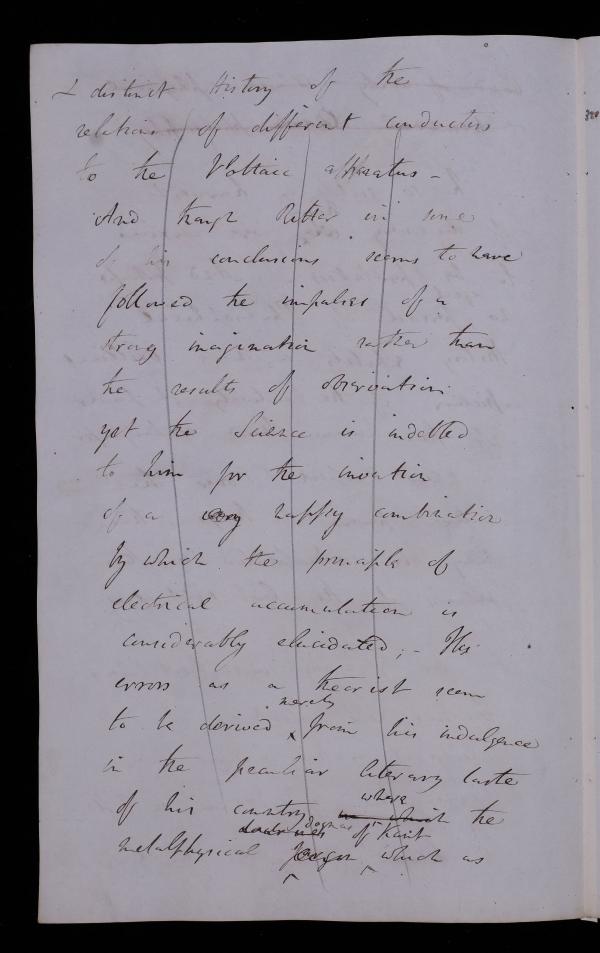 & distinct History of the
relations of different conductors
to the Voltaic apparatus –
And though Ritter in some
of his conclusions seems to have
followed the impulses of a
strong imagination rather than
the results of observation
yet the Science is indebted
to him for the invention
of a very happy combination
by which the principle of
electrical accumulation is
considerably elucidated; – His
errors as a theorist seem
merely
to be derived ^ from his indulgence
in the peculiar literary taste
where
of his country in which the
doctrines dogmas of Kant
metalphysical jargon which as